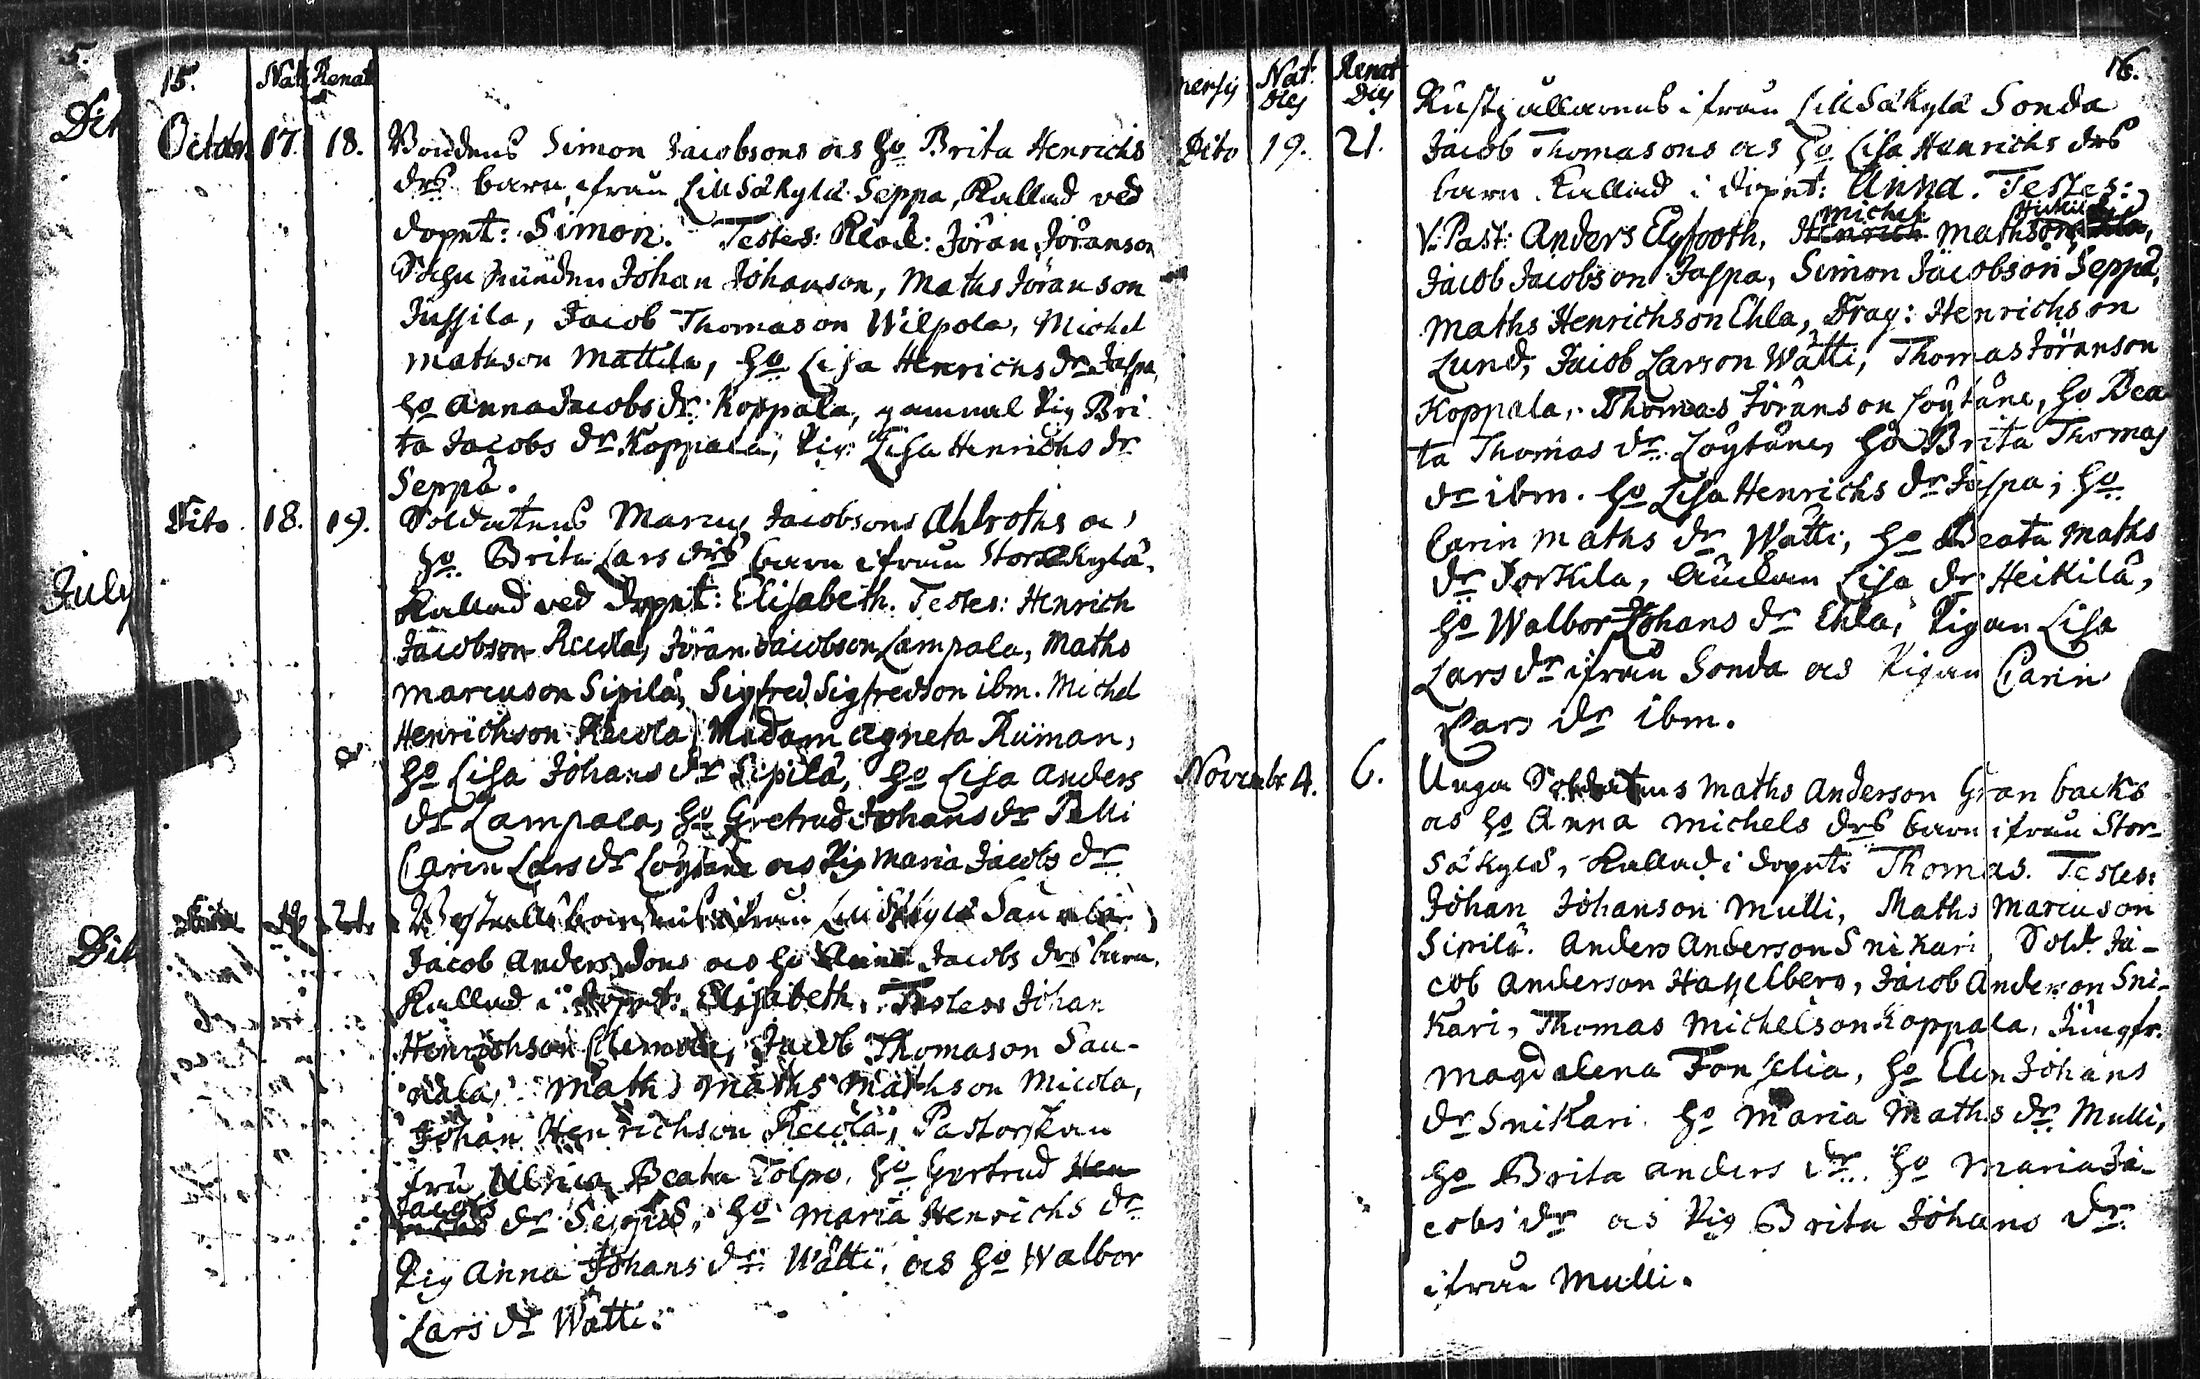 15.
Nat Renat
Octobr 17. 18. Bondens Simon Jacobsons ock ho Brita Henrichs
drs barn, ifrån LillSäkylä Seppä, Kallad ved
dopnt: Simon. Testes: Klåck: Jöran Jöranson
Johan Johanson, Maths Jöranson
Jussila, Jacob Thomason Wilpola, Michel
Mathson Mattila, ho Lisa Henrichs dr Jaspa,
ho Anna Jacobs dr Koppala, gammal Pig Bri
ta Jacobs dr Koppala, Pig: Lisa Henrichs dr
Seppä.
Dito 18. 19. Soldatens Marcus Jacobsons Ahlroths ock
ho Brita Lars drs barn ifrån StorSäkylä.
Kallad ved dopnt: Elisabeth. Testes: Henrich
Jacobson Recola, Jöran Jacobson Lampala, Maths
Marcuson Sipilä, Sigfred Sigfredson ibm. Michel
Henrichson Recola, Madam Agneta Ruman,
ho Lisa Johans dr Sipilä, ho Lisa Anders
dr Lampala, ho Gretrud Johans dr Pelli
Carin Lars dr Löytäne ock Pig Maria Jacobs dr
ifrån LillSäkylä
Jacob Andersons ock ho Jacobs drs barn.
Kallad i dopnt: Elisabeth. Testes: Johan
Henrichson Jacob Thomason Sau-
nala, Maths Maths Mathson Micola,
Johan Henrichson Recola, Pastorskan
fru Ulrica Beata Tolpo. ho Gertrud Hen
Jacobs
richs dr Seppä, ho Maria Henrichs dr
Pig Anna Johans dr Wätti, ock ho Walbor
Lars dr Wätti.
5.
July
16.
Mensis Nat. Dies Renat Dies
Rusthållarens ifrån LillSäkylä Sonda
Dito 19. 21. Jacob Thomasons ock ho Lisa Henrichs drs
barn Kallad i dopnt: Anna. Testes:
Michel
V. Past: Anders Elgfooth, Henrich Mathson
Jacob Jacobson Jaspa, Simon Jacobson Seppä,
Maths Henrichson Ehla, Drag: Henrichson
Lund, Jacob Larson Wätti, Thomas Jöranson
Koppala, Thomas Jöranson Löytäne, ho Bea
ta Thomas dr Löytäne, ho Brita Thomas
dr ibm. ho Lisa Henrichs dr Jaspa, ho
Carin Maths dr Wätti, ho Beata Maths
dr Torkila, Änckan Lisa dr Heikilä,
ho Walbor Johans dr Ehla, Pigan Lisa
Lars dr ifrån Sonda ock Pigan Carin
Lars dr ibm.
Novembr 4. 6. Unga Soldatens Maths Anderson Granbacks
ock ho Anna Michels drs barn ifrån Stor-
Säkylä, Kallad i dopnt: Thomas. Testes:
Johan Johanson Mulli, Maths Marcuson
Sipilä. Anders Anderson Snikari, Sold. Ja-
cob Anderson Hasselberg, Jacob Anderson Sni-
kari, Thomas Michelson Koppala, Jungfr.
Magdalena Fonselia, ho Elin Johans
dr Snikari. ho Maria Maths dr Mulli,
ho Brita Anders dr. ho Maria Ja-
cobs dr ock Pig Brita Johans dr
ifrån Mulli.